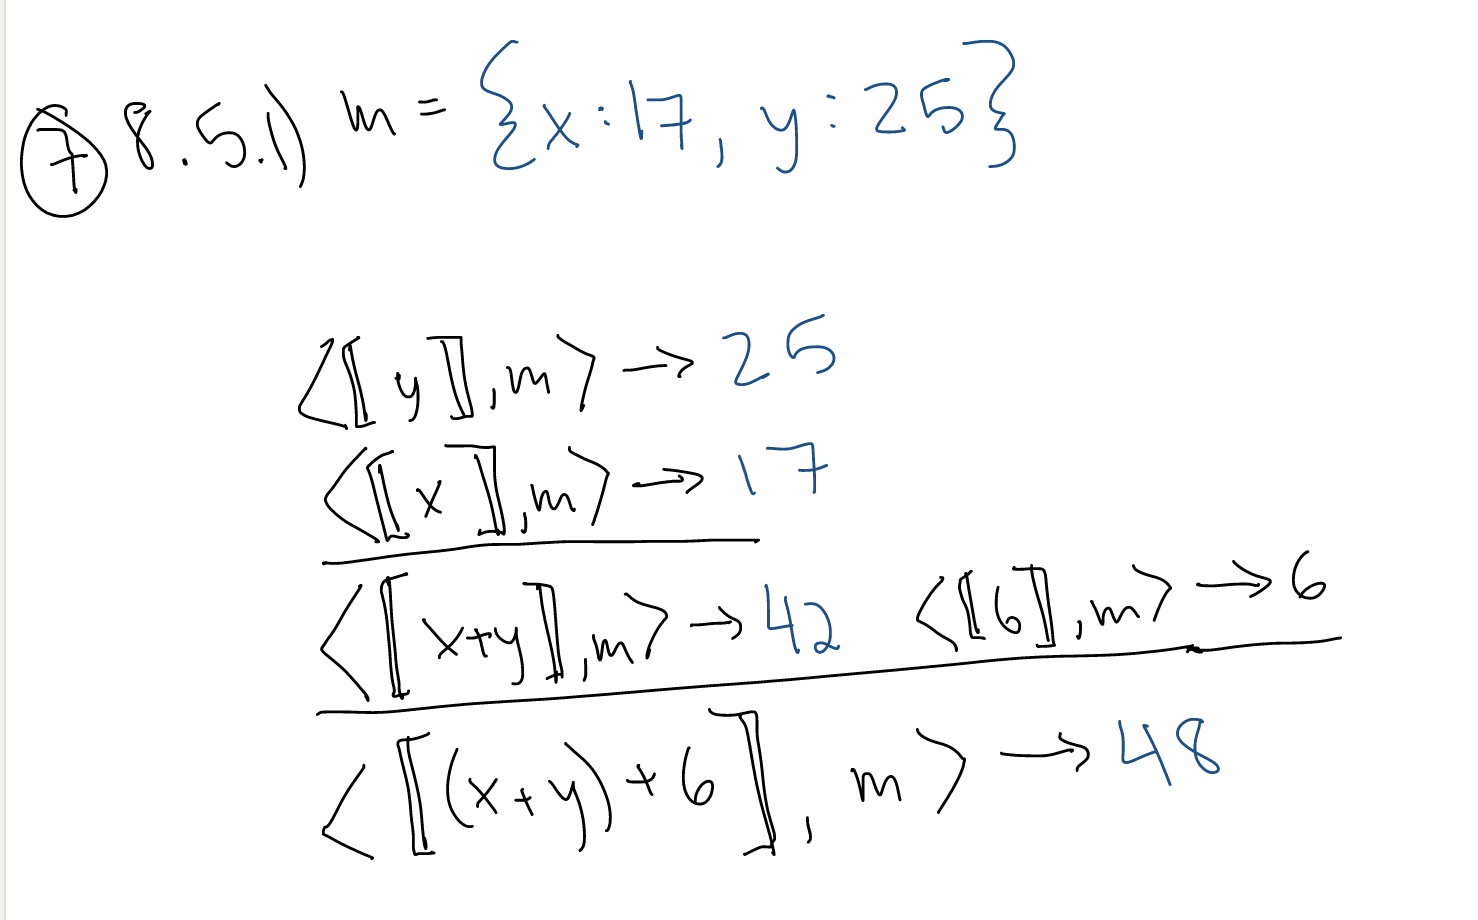 ⑦ 8.5.1) m = {x:17, y:25}
<⟦y⟧,m> → 25
<⟦x⟧,m> → 17
<⟦x+y⟧,m> → 42 <⟦6⟧,m> → 6
<⟦(x+y)+6⟧, m> → 48